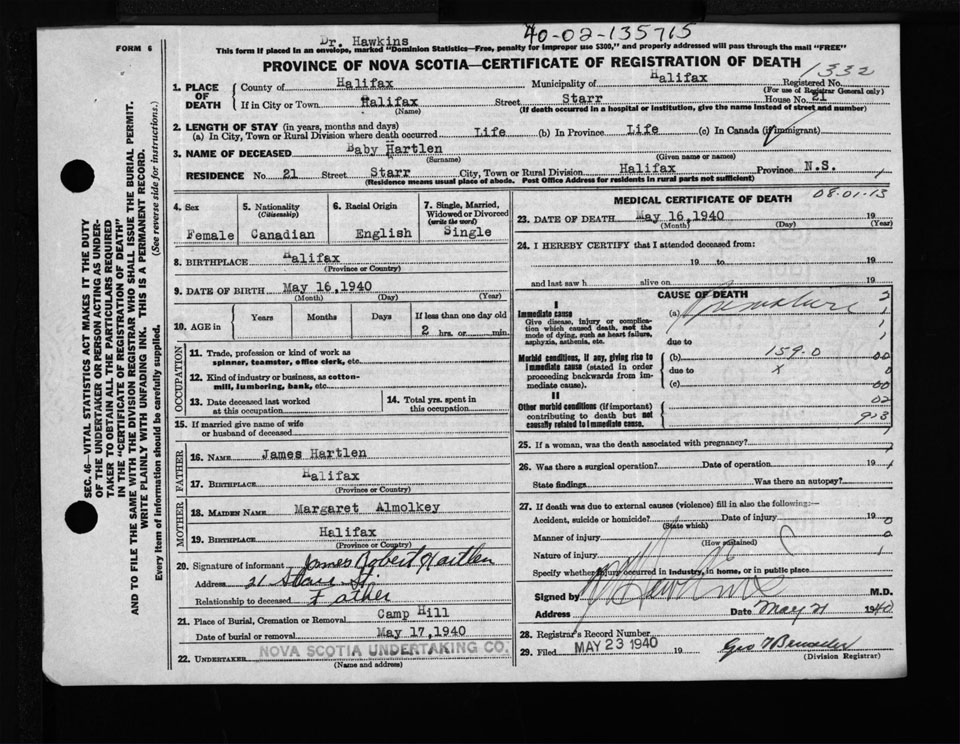 40-02-135715
Dr. Hawkins
FORM 6
This form if placed in an envelope, marked "Dominion Statistics—Free, penalty for improper use $300," and properly addressed will pass through the mail "FREE"
PROVINCE OF NOVA SCOTIA—CERTIFICATE OF REGISTRATION OF DEATH
1332
1. PLACE OF DEATH
County of Halifax Municipality of Halifax Registered No.
(For use of Registrar General only)
If in City or Town Halifax Street Starr House No. 21
(Name) (If death occurred in a hospital or institution, give the name instead of street and number)
2. LENGTH OF STAY (in years, months and days)
(a) In City, Town or Rural Division where death occurred Life (b) In Province Life (c) In Canada (if immigrant)
3. NAME OF DECEASED Baby Hartlen
(Surname) (Given name or names)
RESIDENCE No. 21 Street Starr City, Town or Rural Division Halifax Province N.S.
(Residence means usual place of abode. Post Office Address for residents in rural parts not sufficient)
4. Sex
Female
5. Nationality
(Citizenship)
Canadian
6. Racial Origin
English
7. Single, Married, Widowed or Divorced
(write the word)
Single
8. BIRTHPLACE Halifax
(Province or Country)
9. DATE OF BIRTH May 16,1940
(Month) (Day) (Year)
10. AGE in Years Months Days If less than one day old
2 hrs. or min.
OCCUPATION
11. Trade, profession or kind of work as
spinner, teamster, office clerk, etc.
12. Kind of industry or business, as cotton-
mill, lumbering, bank, etc.
13. Date deceased last worked
at this occupation
14. Total yrs. spent in
this occupation
15. If married give name of wife
or husband of deceased
FATHER
16. NAME James Hartlen
17. BIRTHPLACE Halifax
(Province or Country)
MOTHER
18. MAIDEN NAME Margaret Almolkey
19. BIRTHPLACE Halifax
(Province or Country)
20. Signature of informant James Robert Hartlen
Address 21 Starr St.
Relationship to deceased Father
21. Place of Burial, Cremation or Removal Camp Hill
Date of burial or removal May 17,1940
22. UNDERTAKER NOVA SCOTIA UNDERTAKING CO.
(Name and address)
MEDICAL CERTIFICATE OF DEATH 08-01-13
23. DATE OF DEATH May 16,1940 19
(Month) (Day) (Year)
24. I HEREBY CERTIFY that I attended deceased from:
19 to 19
and last saw h alive on 19
CAUSE OF DEATH
I
Immediate cause
Give disease, injury or complica-
tion which caused death, not the
mode of dying, such as heart failure,
asphyxia, asthenia, etc.
(a) Premature
due to
Morbid conditions, if any, giving rise to
immediate cause (stated in order
proceeding backwards from im-
mediate cause).
(b) 159-0
due to x
(c)
II
Other morbid conditions (if important)
contributing to death but not
causally related to immediate cause.
25. If a woman, was the death associated with pregnancy?
26. Was there a surgical operation? Date of operation 19
State findings Was there an autopsy?
27. If death was due to external causes (violence) fill in also the following:—
Accident, suicide or homicide? Date of injury 19
(State which)
Manner of injury
(How sustained)
Nature of injury
Specify whether injury occurred in industry, in home, or in public place
Signed by M.D.
Address Date May 21 1940
28. Registrar's Record Number
29. Filed MAY 23 1940 19
(Division Registrar)
SEC. 46—VITAL STATISTICS ACT MAKES IT THE DUTY
OF THE UNDERTAKER OR PERSON ACTING AS UNDER-
TAKER TO OBTAIN ALL THE PARTICULARS REQUIRED
IN THE "CERTIFICATE OF REGISTRATION OF DEATH"
AND TO FILE THE SAME WITH THE DIVISION REGISTRAR WHO SHALL ISSUE THE BURIAL PERMIT.
WRITE PLAINLY WITH UNFADING INK. THIS IS A PERMANENT RECORD.
Every item of information should be carefully supplied. (See reverse side for instructions.)